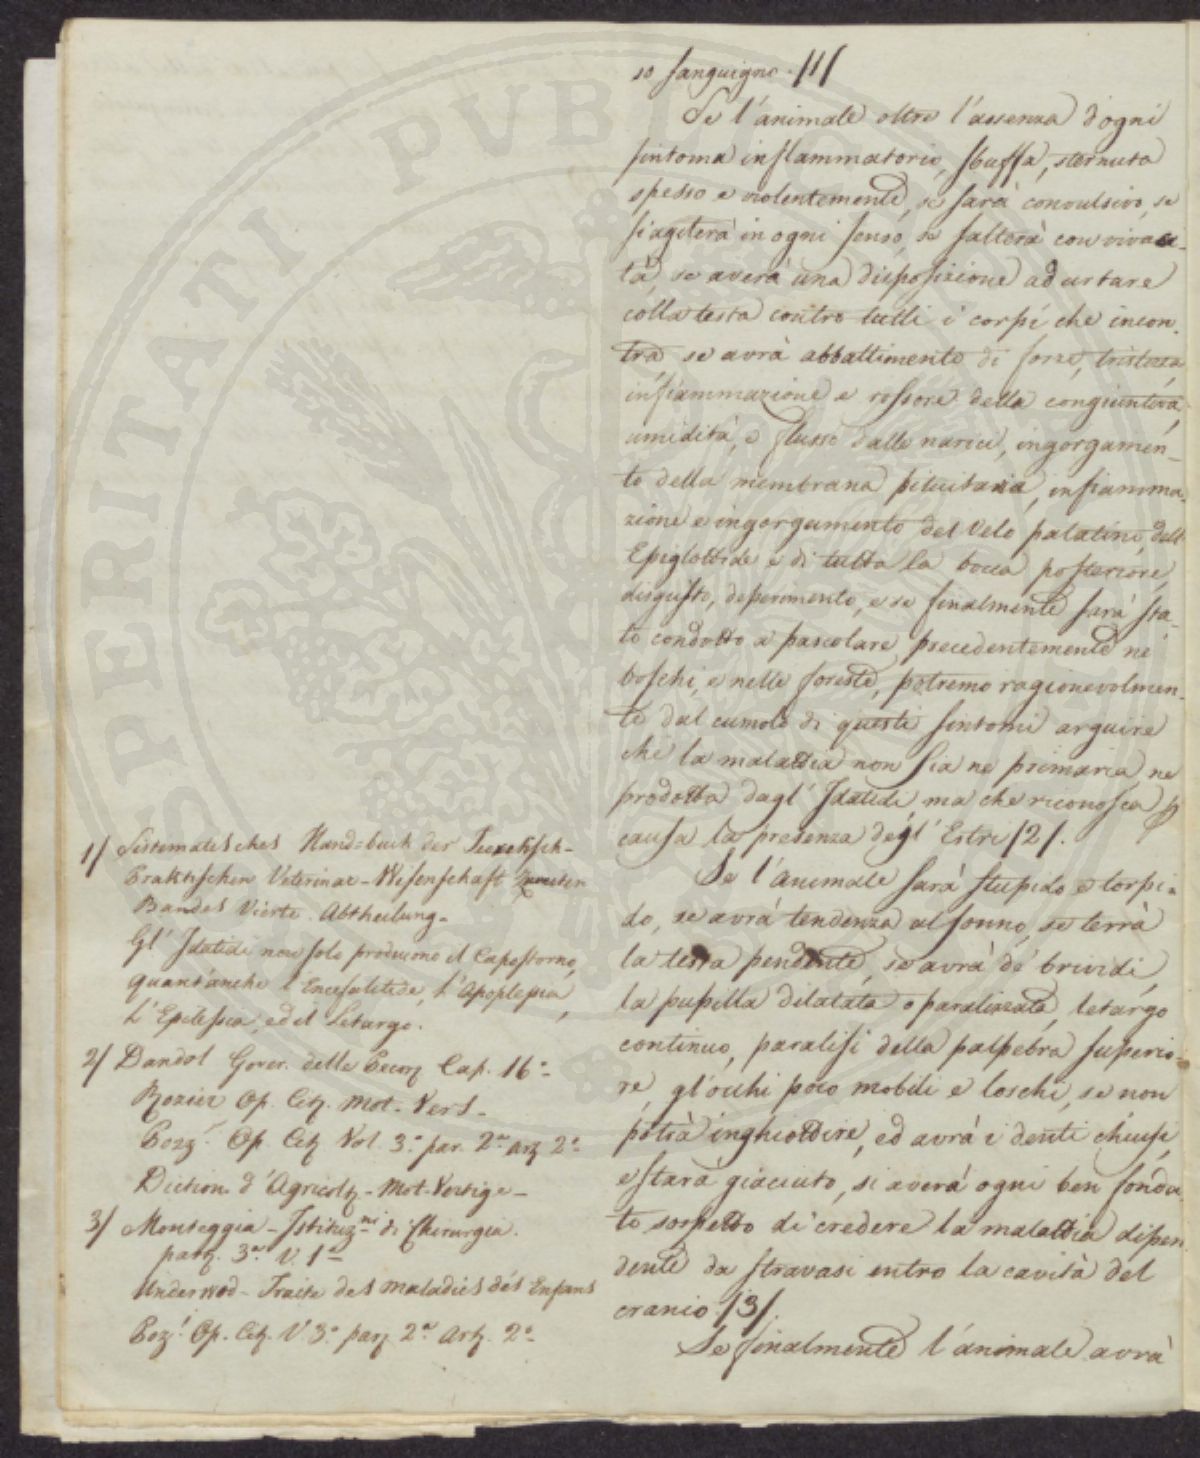 so sanguigno. /1/
Se l'animale oltre l'assenza d'ogni
sintoma inflammatorio, sbuffa, sternuta
spesso e violentemente, se sarà convulsivo, se
si agiterà in ogni senso, se salterà con vivaci-
tà, se averà una disposizione ad urtare
colla testa contro tutti i corpi che incon-
tra, se avrà abbattimento di forze, tristezza,
infiammazione e rossore della congiuntiva,
umidità, e flusso dalle narici, ingorgamen-
to della membrana pituitaria, infiamma-
zione e ingorgamento del velo palatino, dell'
Epiglottide e di tutta la bocca posteriore,
disgusto, deperimento, e se finalmente sarà sta-
to condotto a pascolare precedentemente ne'
boschi, e nelle foreste, potremo ragionevolmen-
te dal cumolo di questi sintomi arguire
che la malattia non sia ne primaria, ne
prodotta dagl' Idatidi, ma che riconosca p
causa la presenza degl' Estri /2/.
Se l'animale sarà stupido e torpi-
do, se avrà tendenza al sonno, se terrà
la testa pendente, se avrà de' brividi,
la pupilla dilatata o paralizzata, letargo
continuo, paralisi della palpebra superio-
re, gl'occhi poco mobili e loschi, se non
potrà inghiottire, ed avrà i denti chiusi,
e starà giaciuto, si averà ogni ben fonda-
to sospetto di credere la malattia dipen-
dente da stravasi entro la cavità del
cranio /3/.
Se finalmente l'animale avrà
1/ Sistematisches Hand=buch der Teoretisch-
Praktischen Veterinar-Wisenschaft Zweiten
Bandes Vierte Abtheilung-
Gl' Idatidi non solo producono il Capostorno,
quant'anche l'Encefalitide, l'Apoplessia,
l'Epilessia, ed il Letargo.
2/ Dandol Gover. delle Pecor Cap. 16°-
Rozier Op. Cit. Mot. Vers-
Pozz! Op. Cit Vol. 3° par. 2a art 2°
Diction d'Agricolt - Mot-Vertige-
3/ Monteggia - Istituz.ni di Chirurgia.
part. 3a V. 1°
Underwod - Traite des maladies des Enfans
Poz! Op. Cit. V 3° par 2a Art. 2°